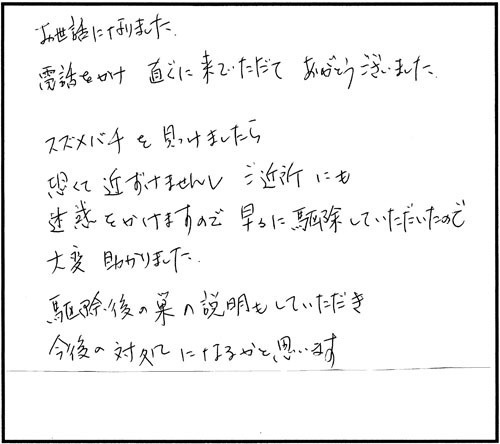 お世話になりました.
電話をかけ 直ぐに来ていただて ありがとうございました.
スズメバチを見つけましたら
恐くて近ずけませんし ご近所にも
迷惑をかけますので 早くに駆除していただいたので
大変助かりました.
駆除後の巣の説明もしていただき
今後の対処になるかと思います